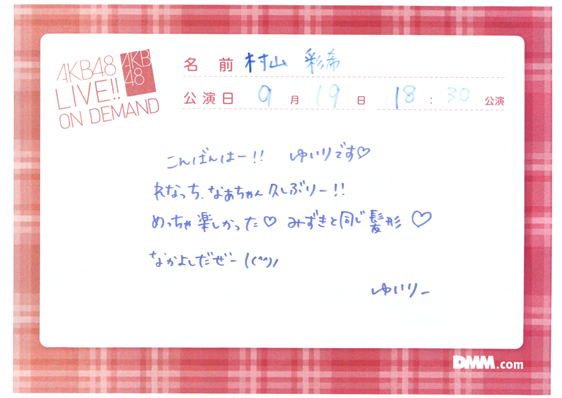 AKB48
LIVE!!
ON DEMAND
AKB
48
名前 村山 彩希
公演日 9月19日 18:30公演
こんばんはー!! ゆいりです♡
れなっち、なぁちゃん久しぶりー!!
めっちゃ楽しかった♡ みずきと同じ髪形♡
なかよしだぜー \(^^)/
ゆいりー
DMM.com